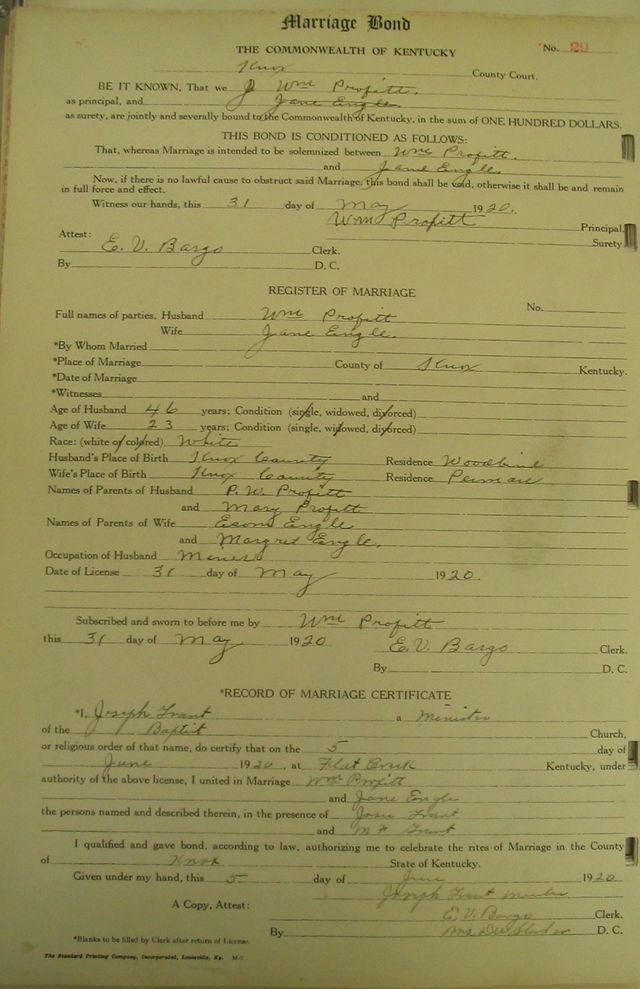 Marriage Bond
THE COMMONWEALTH OF KENTUCKY No. 29
Knox County Court.
BE IT KNOWN, That we Wm Profitt.
as principal, and Jane Engle
as surety, are jointly and severally bound to the Commonwealth of Kentucky, in the sum of ONE HUNDRED DOLLARS.
THIS BOND IS CONDITIONED AS FOLLOWS:
That, whereas Marriage is intended to be solemnized between Wm Profitt.
and Jane Engle.
Now, if there is no lawful cause to obstruct said Marriage, this bond shall be void, otherwise it shall be and remain
in full force and effect.
Witness our hands, this 31 day of May 1920.
Wm Profitt Principal.
Surety.
Attest:
E. V. Bargo Clerk.
By D. C.
REGISTER OF MARRIAGE
No.
Full names of parties, Husband Wm Profitt
Wife Jane Engle.
*By Whom Married
*Place of Marriage County of Knox Kentucky.
*Date of Marriage
*Witnesses and
Age of Husband 46 years; Condition (single, widowed, divorced)
Age of Wife 23 years; Condition (single, widowed, divorced)
Race: (white or colored) White
Husband's Place of Birth Knox County Residence Woodbine
Wife's Place of Birth Knox County Residence
Names of Parents of Husband P. W. Profitt
and Mary Profitt
Names of Parents of Wife Esom Engle
and Margret Engle.
Occupation of Husband Miner
Date of License 31 day of May 1920.
Subscribed and sworn to before me by Wm Profitt
this 31 day of May 1920 E. V. Bargo Clerk.
By D. C.
*RECORD OF MARRIAGE CERTIFICATE
*I, Joseph Grant a Minister
of the Baptist Church,
or religious order of that name, do certify that on the 5 day of
June 1920, at Flat Creek Kentucky, under
authority of the above license, I united in Marriage Wm Profitt
and Jane Engle
the persons named and described therein, in the presence of Josie Grant
and Grant
I qualified and gave bond, according to law, authorizing me to celebrate the rites of Marriage in the County
of Knox State of Kentucky.
Given under my hand, this 5 day of June 1920
Joseph Grant
A Copy, Attest: E. V. Bargo Clerk.
By D. C.
*Blanks to be filled by Clerk after return of License.
The Standard Printing Company, Incorporated, Louisville, Ky.